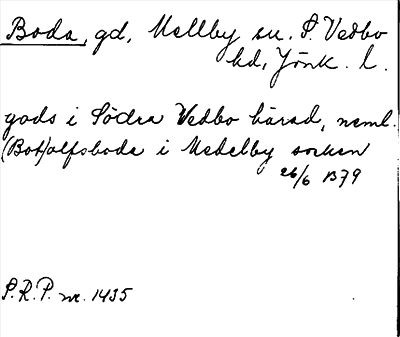 Boda, gd, Mellby sn. S. Vedbo
hd, Jönk. l.
gods i Södra Vedbo härad, neml.
(Bot)olfsboda i Medelby sochen
26/6 1379
S.R.P. nr. 1435